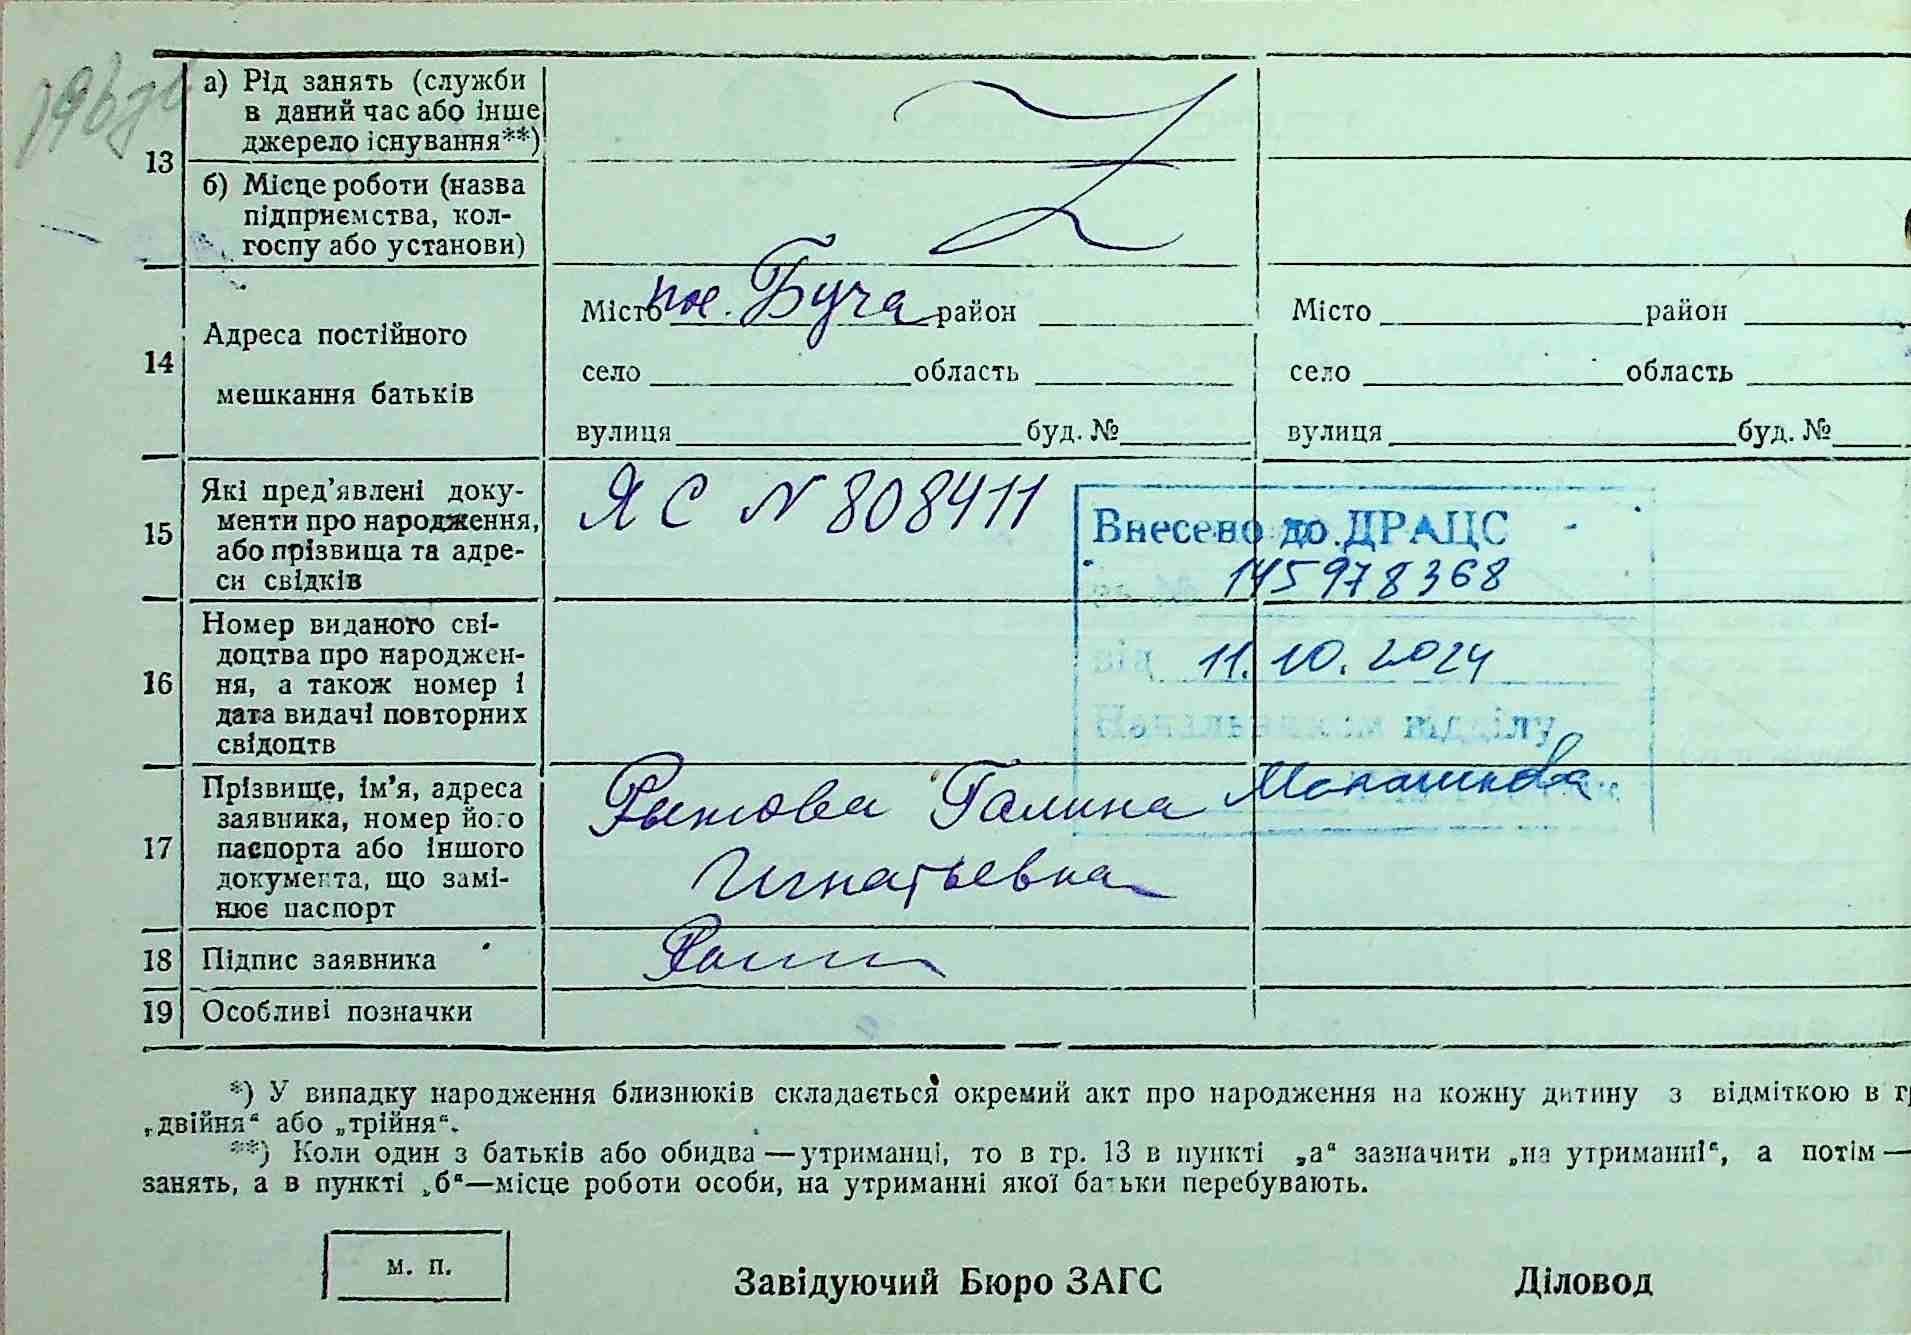 13
а) Рід занять (служби
в даний час або інше
джерело існування**)
б) Місце роботи (назва
підприємства, кол-
госпу або установи)
14
Адреса постійного
мешкання батьків
Місто пос. Буча район
село область
вулиця буд. №
Місто район
село область
вулиця буд. №
15
Які пред’явлені доку-
менти про народження,
або прізвища та адре-
си свідків
ЯС N 808411
Внесено до ДРАЦС
145978368
від 11.10.2024
Начальником відділу
16
Номер виданого сві-
доцтва про народжен-
ня, а також номер і
дата видачі повторних
свідоцтв
17
Прізвище, ім’я, адреса
заявника, номер його
паспорта або іншого
документа, що замі-
нює паспорт
Галина
Игнатьевна
18 Підпис заявника
19 Особливі позначки
*) У випадку народження близнюків складається окремий акт про народження на кожну дитину з відміткою в гр
„двійня“ або „трійня“.
**) Коли один з батьків або обидва — утриманці, то в гр. 13 в пункті „а“ зазначити „на утриманні“, а потім —
занять, а в пункті „б“—місце роботи особи, на утриманні якої батьки перебувають.
м. п.
Завідуючий Бюро ЗАГС Діловод